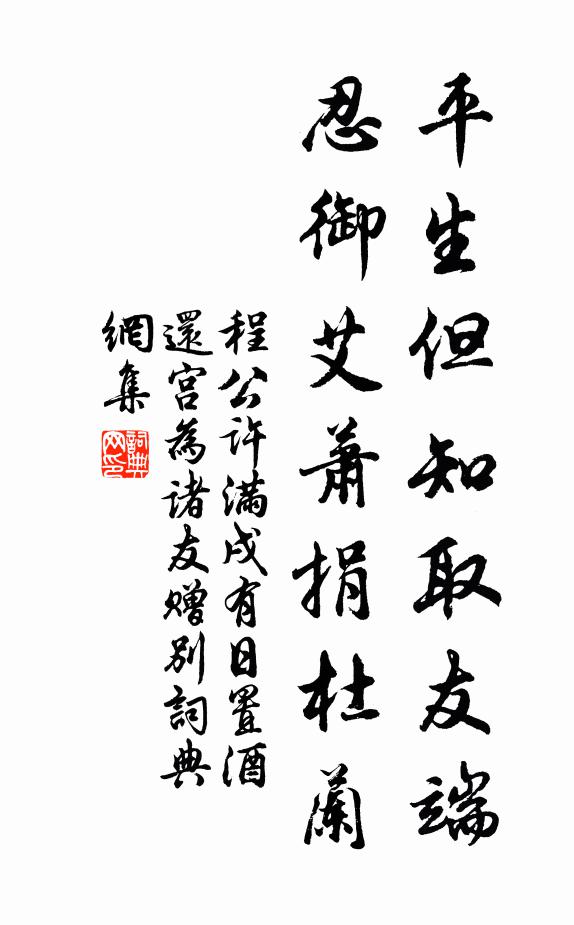 平生但知取友端
忍御艾蕭捐杜蘭
程公許滿戍有日置酒
還宮為諸友贈別詞典
網集
詞典网印